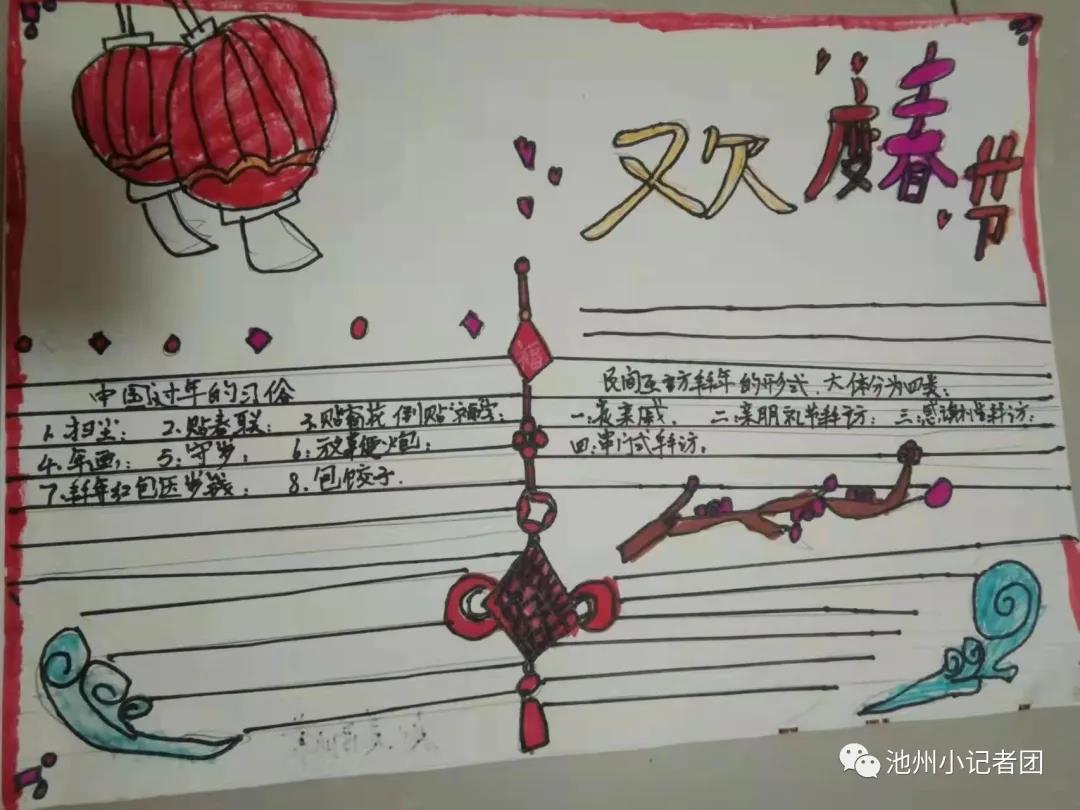 欢度春节
福
中国过年的习俗
1.扫尘; 2.贴春联; 3.贴窗花 倒贴福字;
4.年画; 5.守岁; 6.放鞭炮;
7.拜年红包压岁钱; 8.包饺子.
民间互访拜年的形式,大体分为四类:
一.表亲戚. 二.亲朋礼节拜访; 三.感谢性拜访.
四.串门式拜访。
池州小记者团